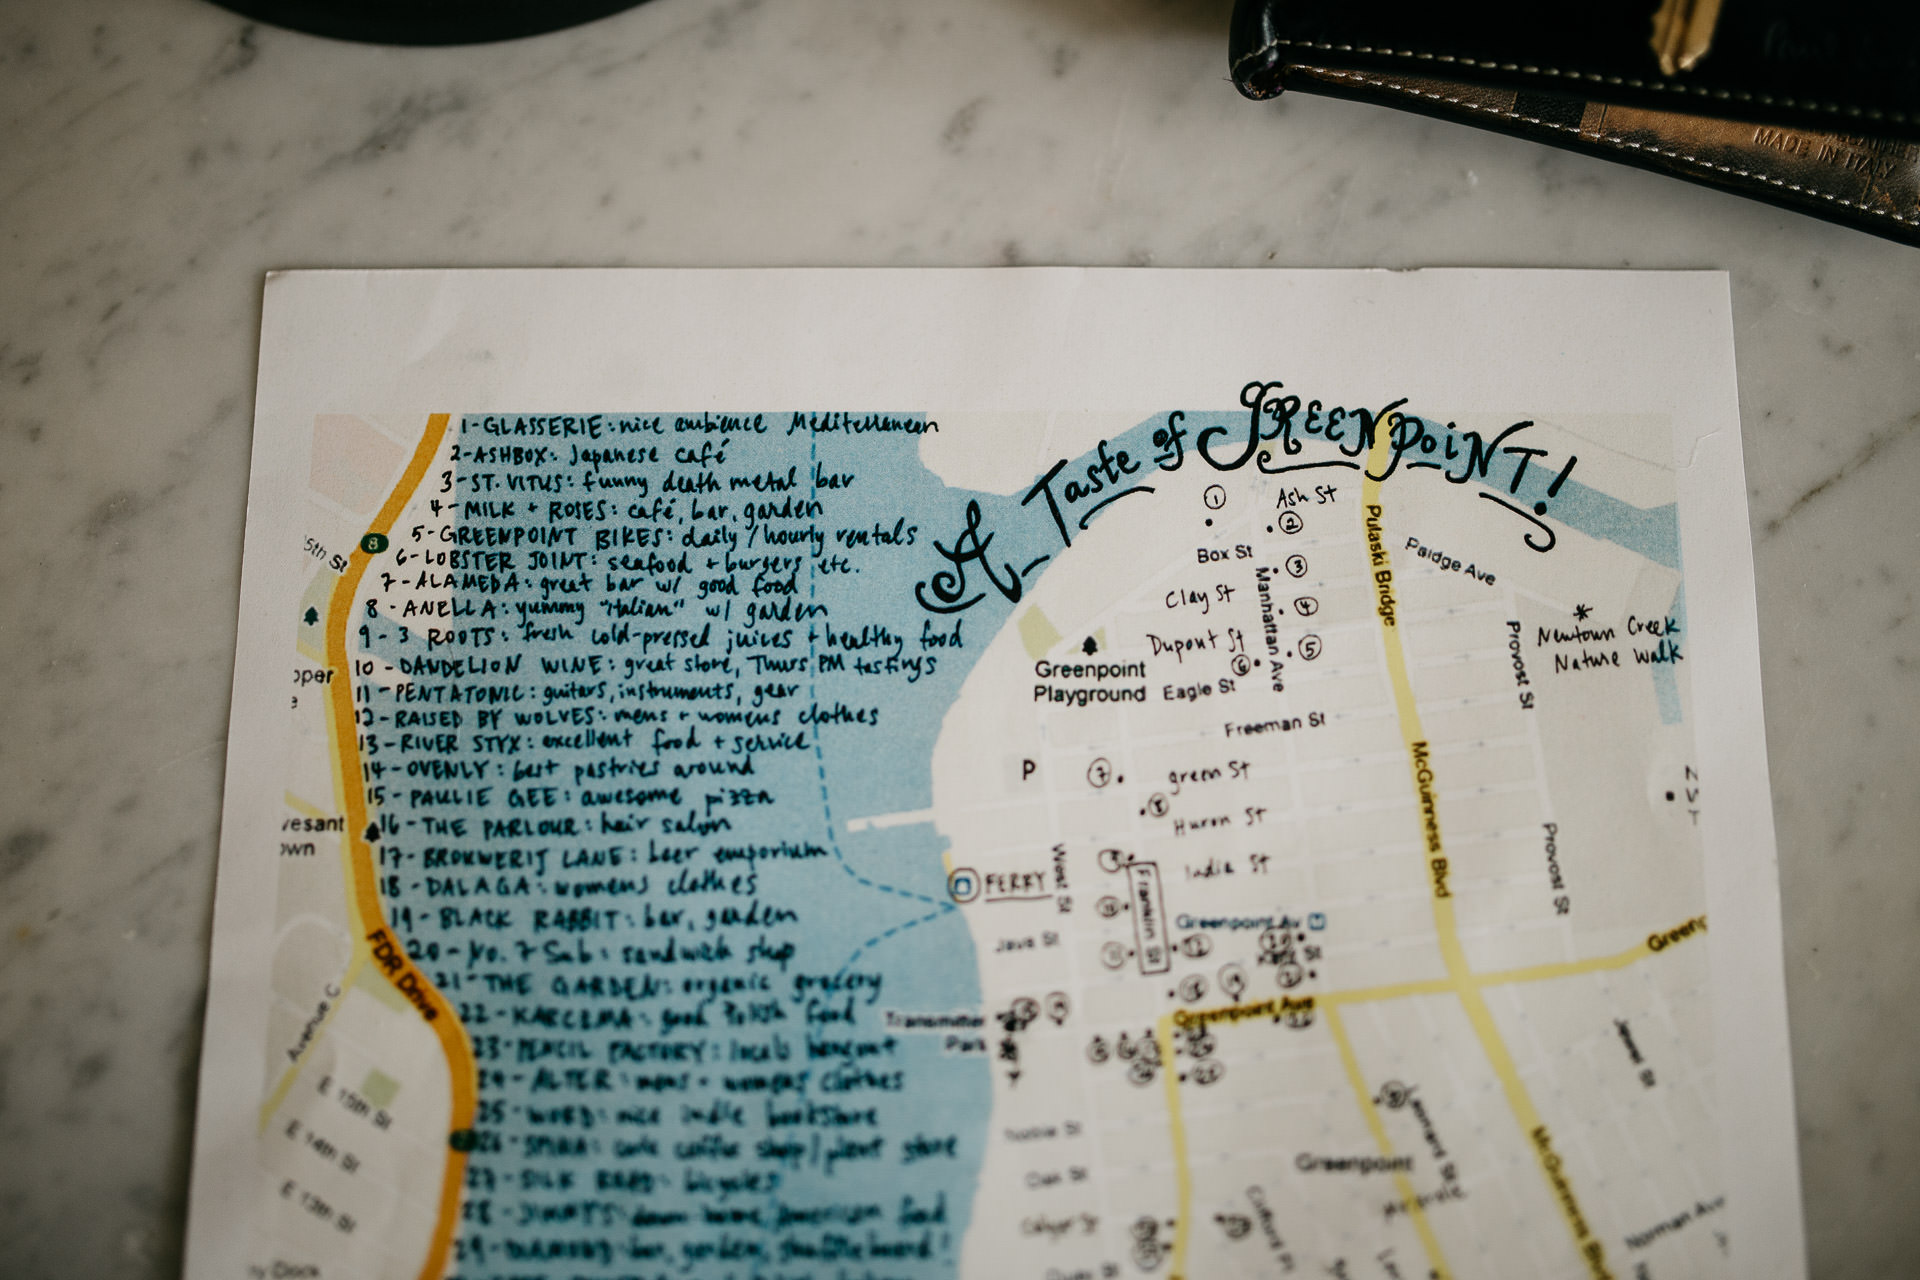 MADE IN ITALY
A Taste of GREENPOINT!
1-GLASSERIE: nice ambience Mediterranean
2-ASHBOX: Japanese café
3-ST. VITUS: funny death metal bar
4-MILK + ROSES: café, bar, garden
5-GREENPOINT BIKES: daily/hourly rentals
6-LOBSTER JOINT: seafood + burgers etc.
7-ALAMEDA: great bar w/ good food
8-ANELLA: yummy "italian" w/ garden
9-3 ROOTS: fresh cold-pressed juices + healthy food
10-DANDELION WINE: great store, Thurs PM tastings
11-PENTATONIC: guitars, instruments, gear
12-RAISED BY WOLVES: mens + womens clothes
13-RIVER STYX: excellent food + service
14-OVENLY: best pastries around
15-PAULIE GEE: awesome pizza
16-THE PARLOUR: hair salon
17-BROUWERIJ LANE: beer emporium
18-DALAGA: womens clothes
19-BLACK RABBIT: bar, garden
20-No. 7 Sub: sandwich shop
21-THE GARDEN: organic grocery
22-KARCZMA: good Polish food
23-PENCIL FACTORY: locals hangout
24-ALTER: mens + womens clothes
25-WORD: nice indie bookstore
26-coffee shop/plant store
27-SILK ROAD: bicycles
28-down home American food
29-DIAMOND: bar, garden, shuffleboard!
8
5th St
pper
e
vesant
own
FDR Drive
Avenue C
E 15th St
E 14th St
E 13th St
Dock
1
Ash St
2
Box St
3
Clay St
Manhattan Ave
4
Dupont St
5
6
Eagle St
Greenpoint
Playground
Freeman St
Pulaski Bridge
Paidge Ave
Provost St
* Newtown Creek
Nature Walk
P
7
green St
8
Huron St
McGuinness Blvd
N
S
T
India St
West St
FERRY
Franklin St
Provost St
Greenpoint Av
Java St
12
Greenp
Greenpoint Ave
Transmitter
Park
Jewel St
Noble St
Oak St
Greenpoint
Calyer St
Clifford Pl
McGuinness Blvd
Norman Ave